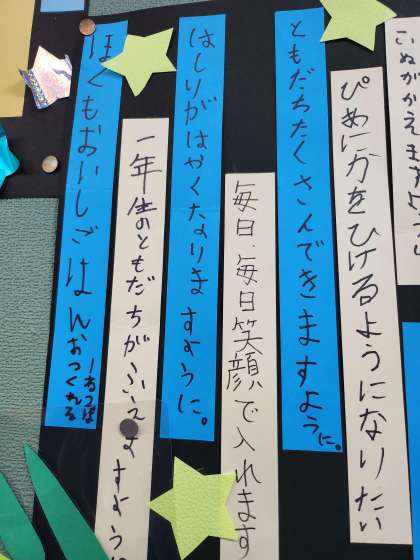 こいぬがかえますように
ぴあにかをひけるようになりたい
ともだちたくさんできますように。
毎日、毎日笑顔で入れます
はしりがはやくなりますように。
一年生のともだちがふえますように
ぼくもおいしごはんおつくれる